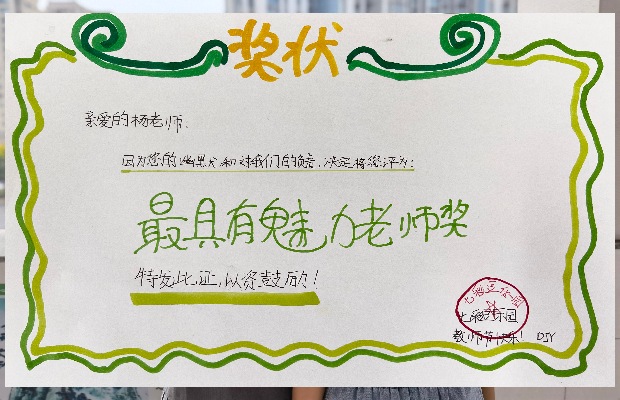 奖状
亲爱的杨老师：
因为您的幽默大和对我们的负责，决定将您评为：
最具有魅力老师奖
特发此证，以资鼓励！
乐园
教师节快乐！ DIY